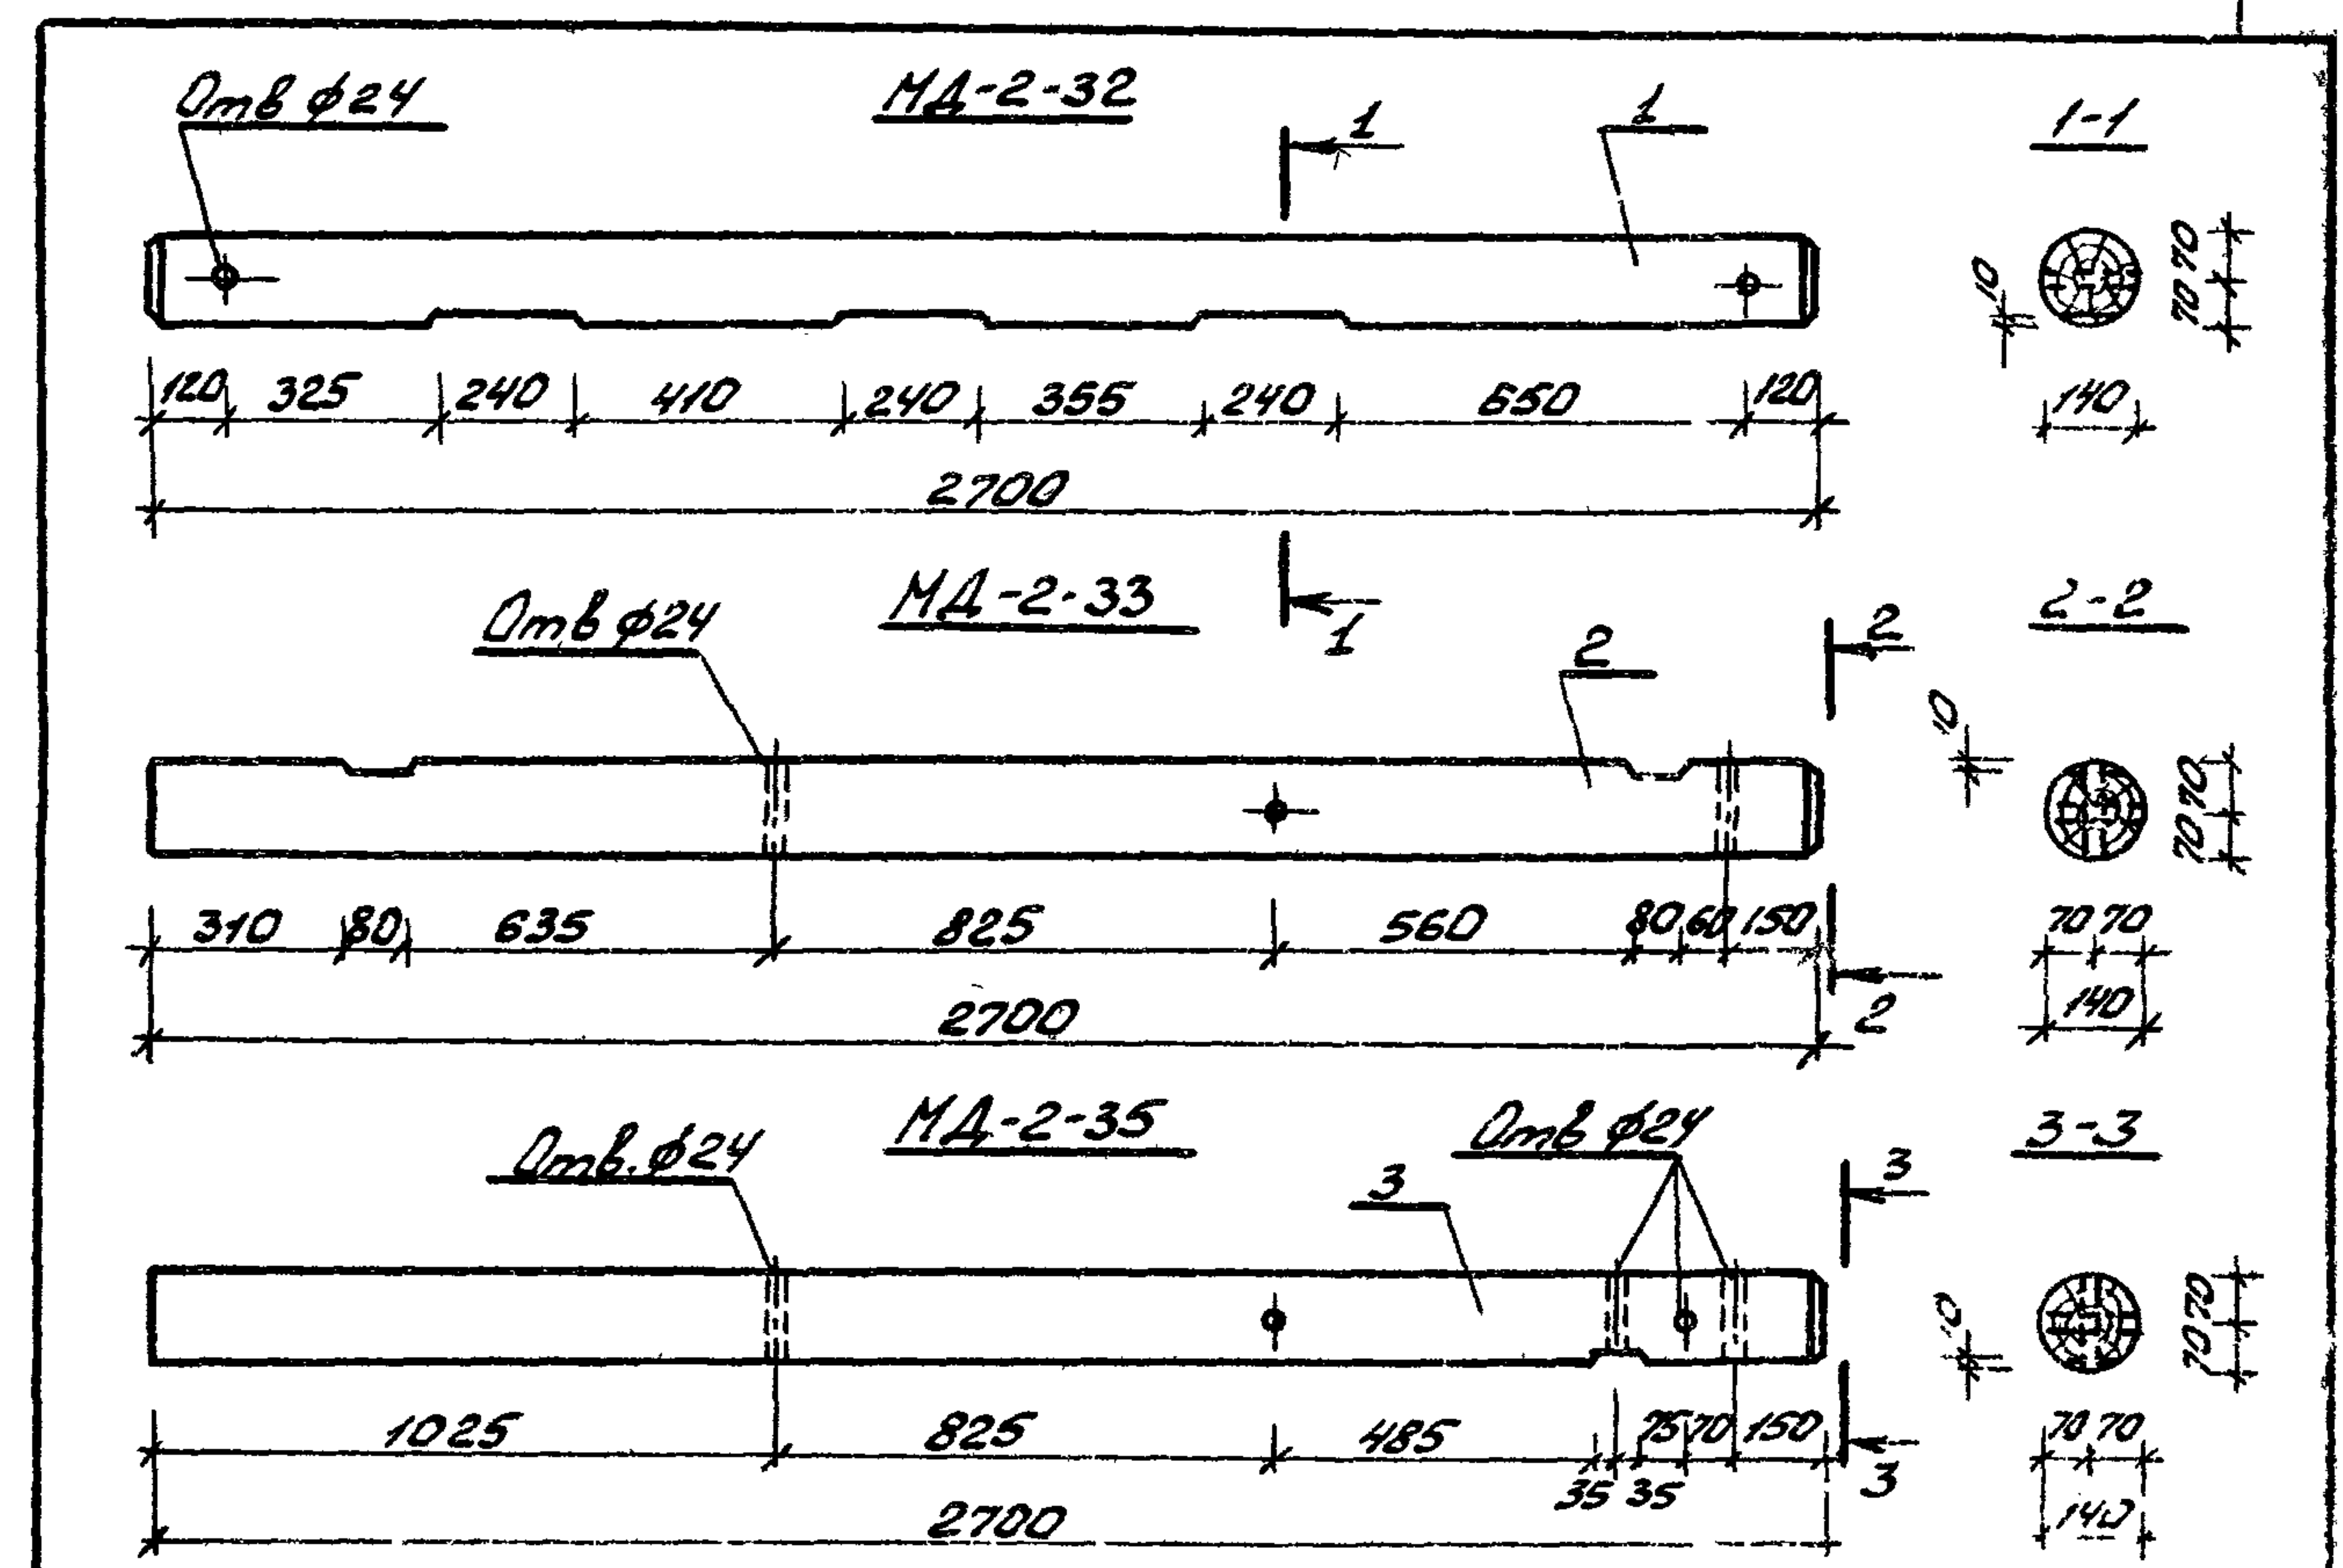 Отв ф24
МД-2-32
1
1
1-1
10
70 70
120 325 240 410 240 355 240 650 120
140
2700
1
Отв ф24
МД-2-33
2
2
2-2
10
70 70
310 80 635 825 560 80 60 150
70 70
2700
2
140
Отв. ф24
МД-2-35
3
Отв ф24
3
3-3
10
70 70
1025 825 485 75 70 150
35 35
3
70 70
2700
140